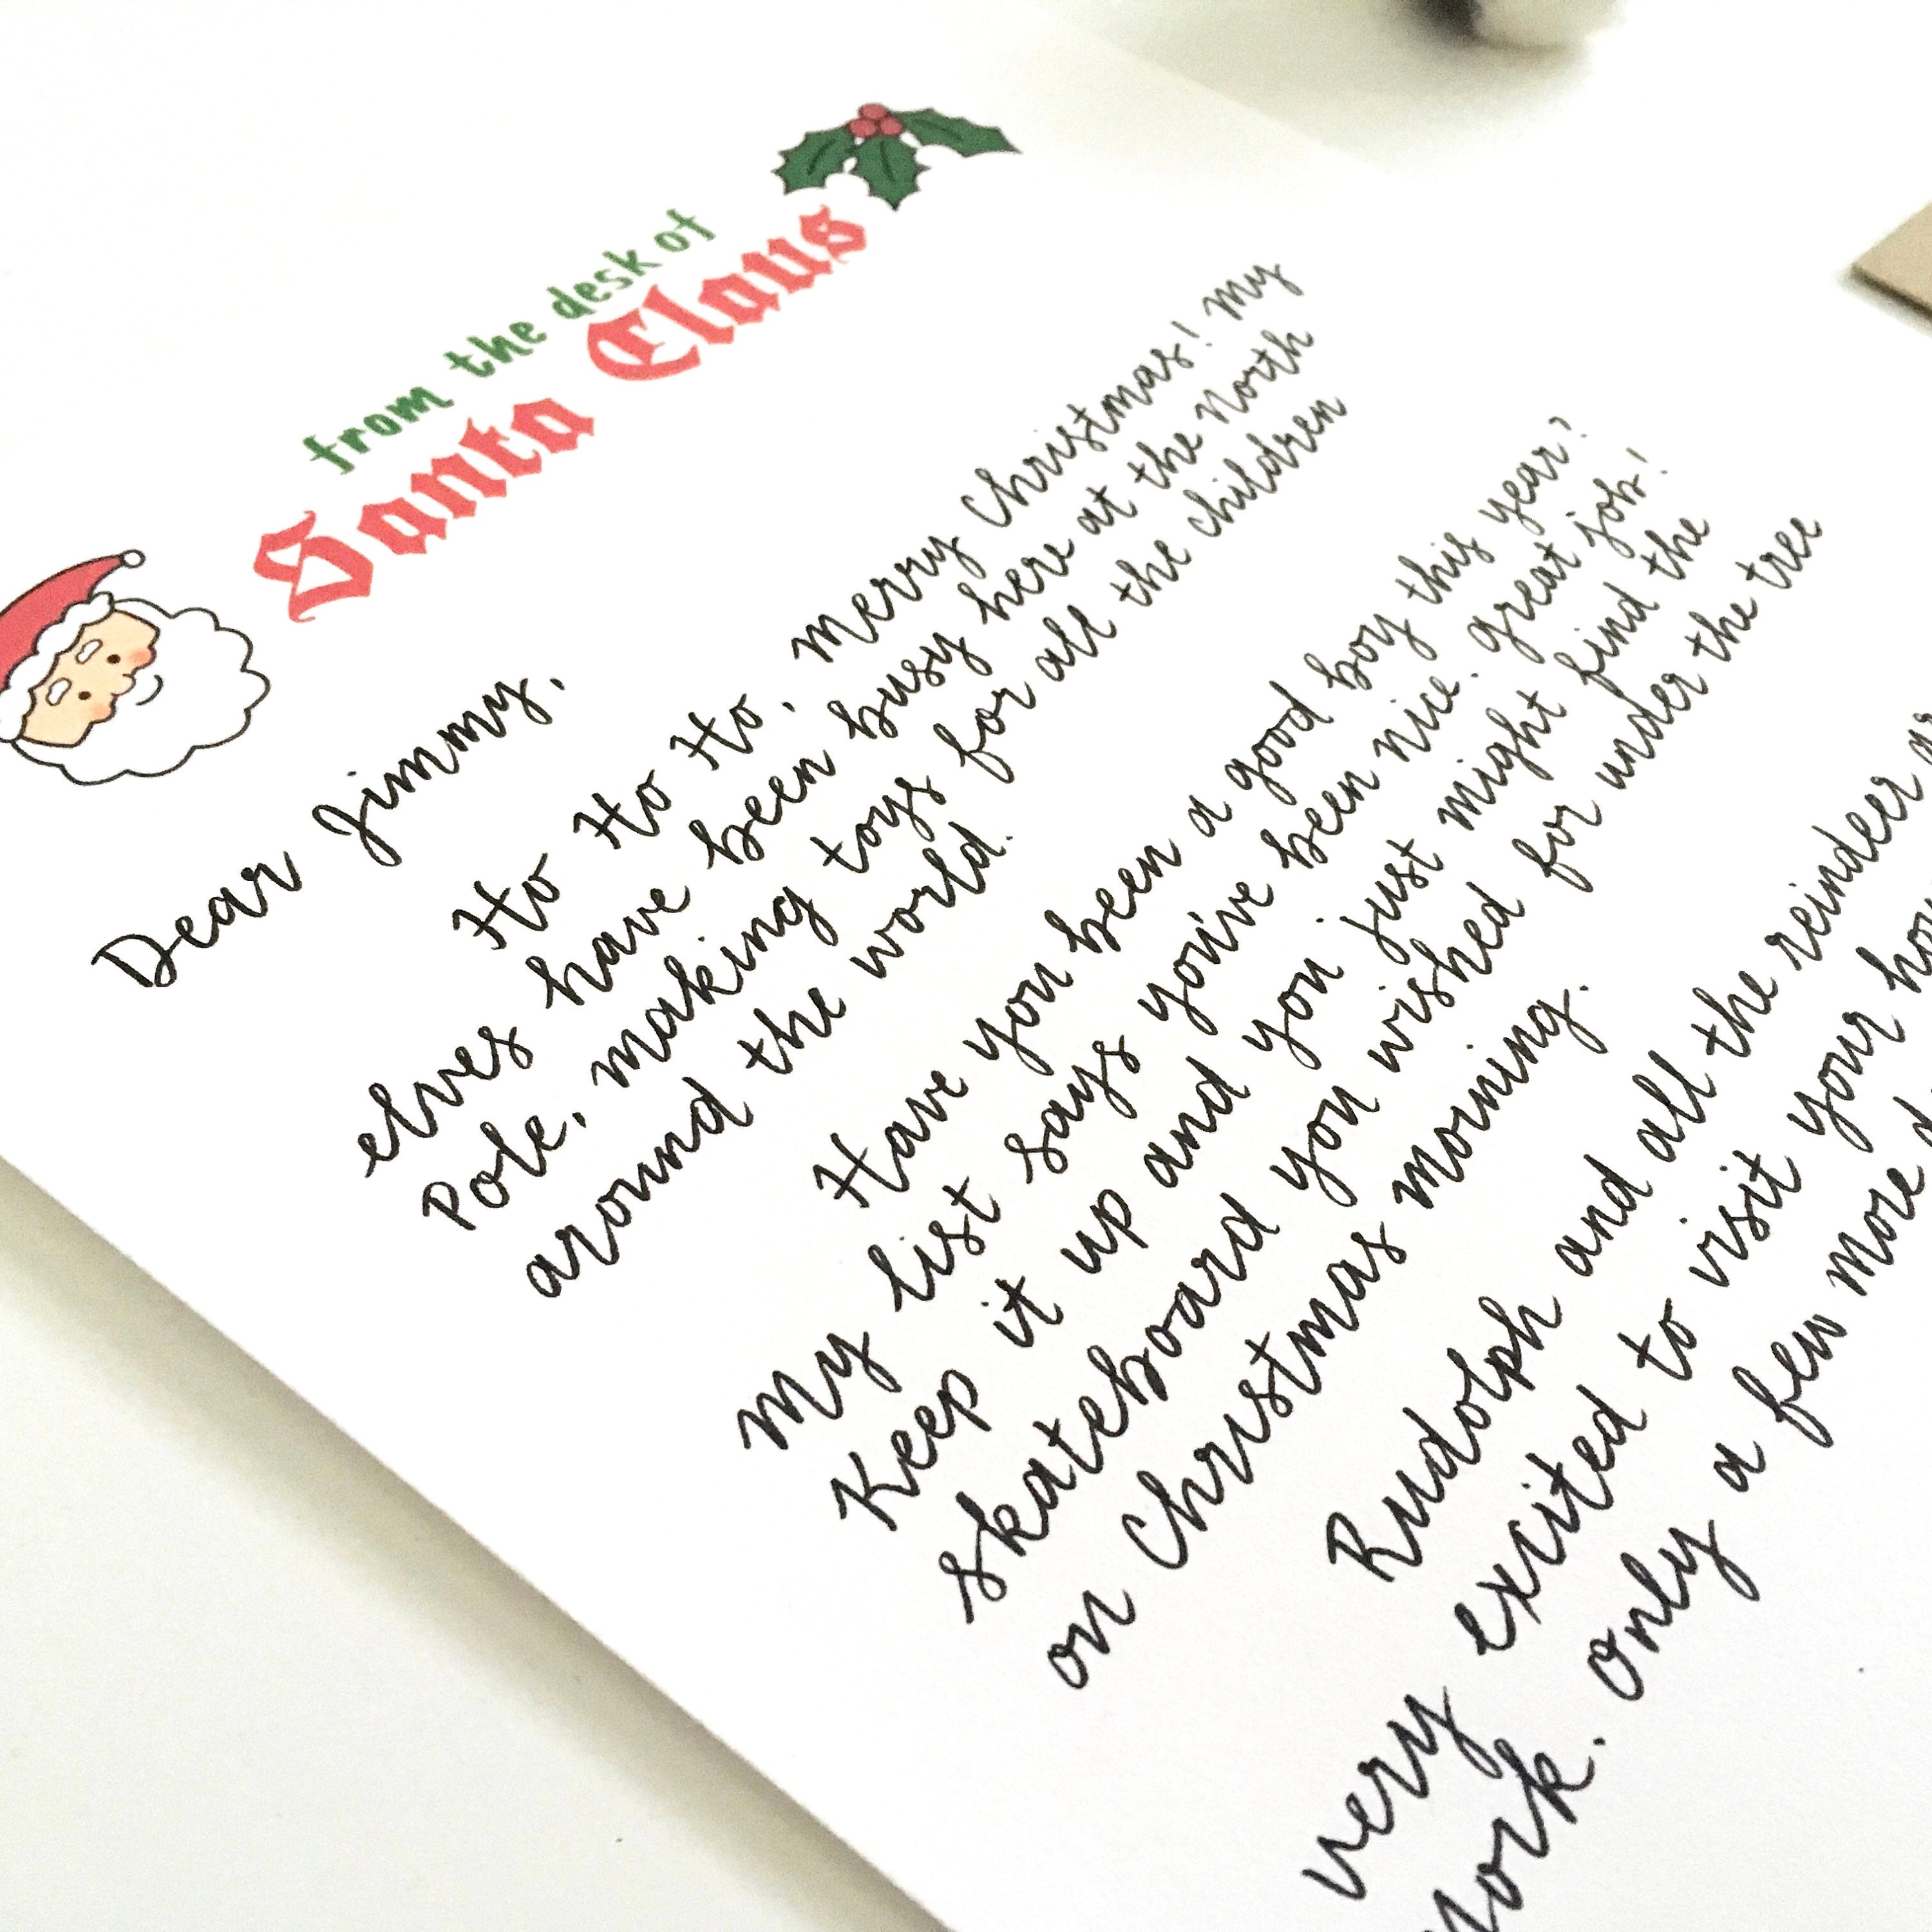 from the desk of
Santa Claus
Dear Jimmy,
Ho Ho Ho, Merry Christmas! My
elves have been busy here at the North
Pole, making toys for all the children
around the world.
Have you been a good boy this year?
My list says you've been nice. Great job!
Keep it up and you just might find the
skateboard you wished for under the tree
on Christmas morning.
Rudolph and all the reindeer
very excited to visit your
Only a few more